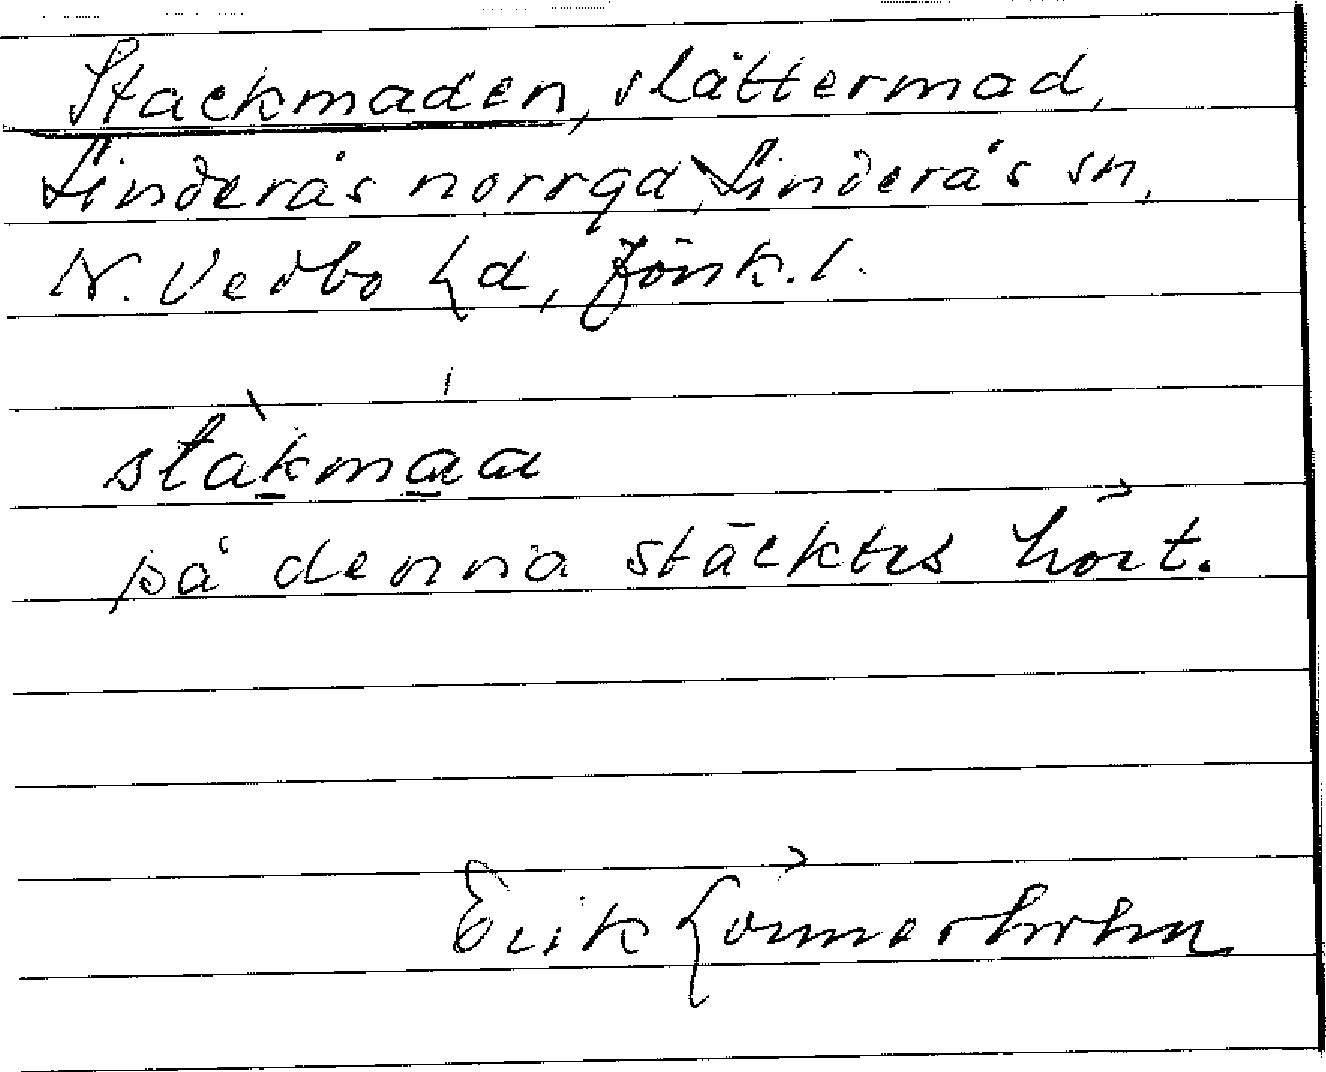 Stackmaden, slåttermad,
Linderås norrgd, Linderås sn,
N. Vedbo hd, Jönk. l.
stàkmaa
på denna stäcktes höet.
Erik Lönnerholm